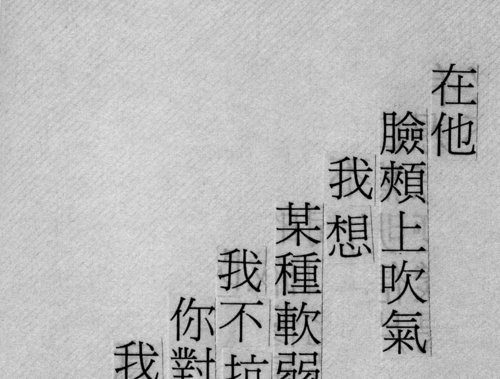 在他
臉頰上吹氣
我想
某種軟弱
我不抗
你對
我